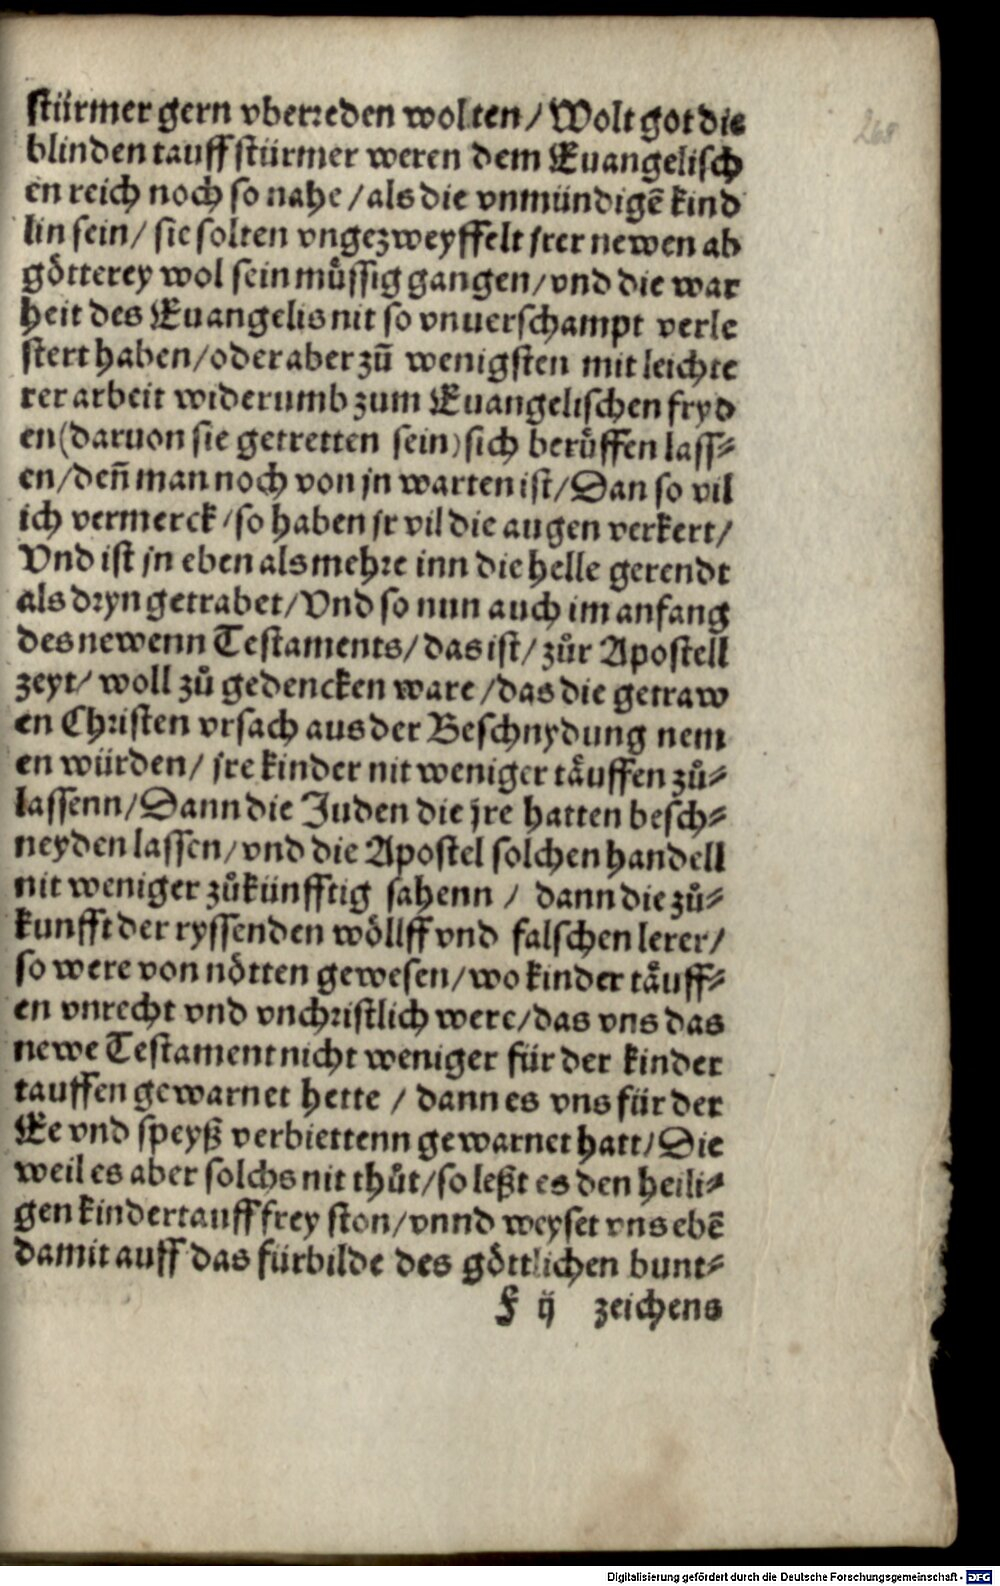 stürmer gern vberreden wolten / Wolt got die
blinden tauffstürmer weren dem Euangelisch
en reich noch so nahe / als die vnmündigẽ kind
lin sein / sie solten vngezweyffelt jrer newen ab
götterey wol sein müssig gangen / vnd die war
heit des Euangelis nit so vnuerschampt verle
stert haben / oder aber zů wenigsten mit leichte
rer arbeit widerumb zum Euangelischen fryd
en (daruon sie getretten sein) sich berůffen lass-
en / deñ man noch von jn warten ist / Dan so vil
ich vermerck / so haben jr vil die augen verkert /
Vnd ist jn eben als mehre inn die helle gerendt
als dryn getrabet / Vnd so nun auch im anfang
des newenn Testaments / das ist / zůr Apostell
zeyt / woll zů gedencken ware / das die getraw
en Christen vrsach aus der Beschnydung nem
en würden / jre kinder nit weniger täuffen zů-
lassenn / Dann die Juden die jre hatten besch-
neyden lassen / vnd die Apostel solchen handell
nit weniger zůkünfftig sahenn / dann die zů-
kunfft der ryssenden wöllff vnd falschen lerer /
so were von nötten gewesen / wo kinder täuff-
en vnrecht vnd vnchristlich were / das vns das
newe Testament nicht weniger für der kinder
tauffen gewarnet hette / dann es vns für der
Ee vnd speyß verbiettenn gewarnet hatt / Die
weil es aber solchs nit thůt / so leßt es den heili-
gen kindertauff frey ston / vnnd weyset vns ebẽ
damit auff das fürbilde des göttlichen bunt-
F ij zeichens
268
Digitalisierung gefördert durch die Deutsche Forschungsgemeinschaft - DFG